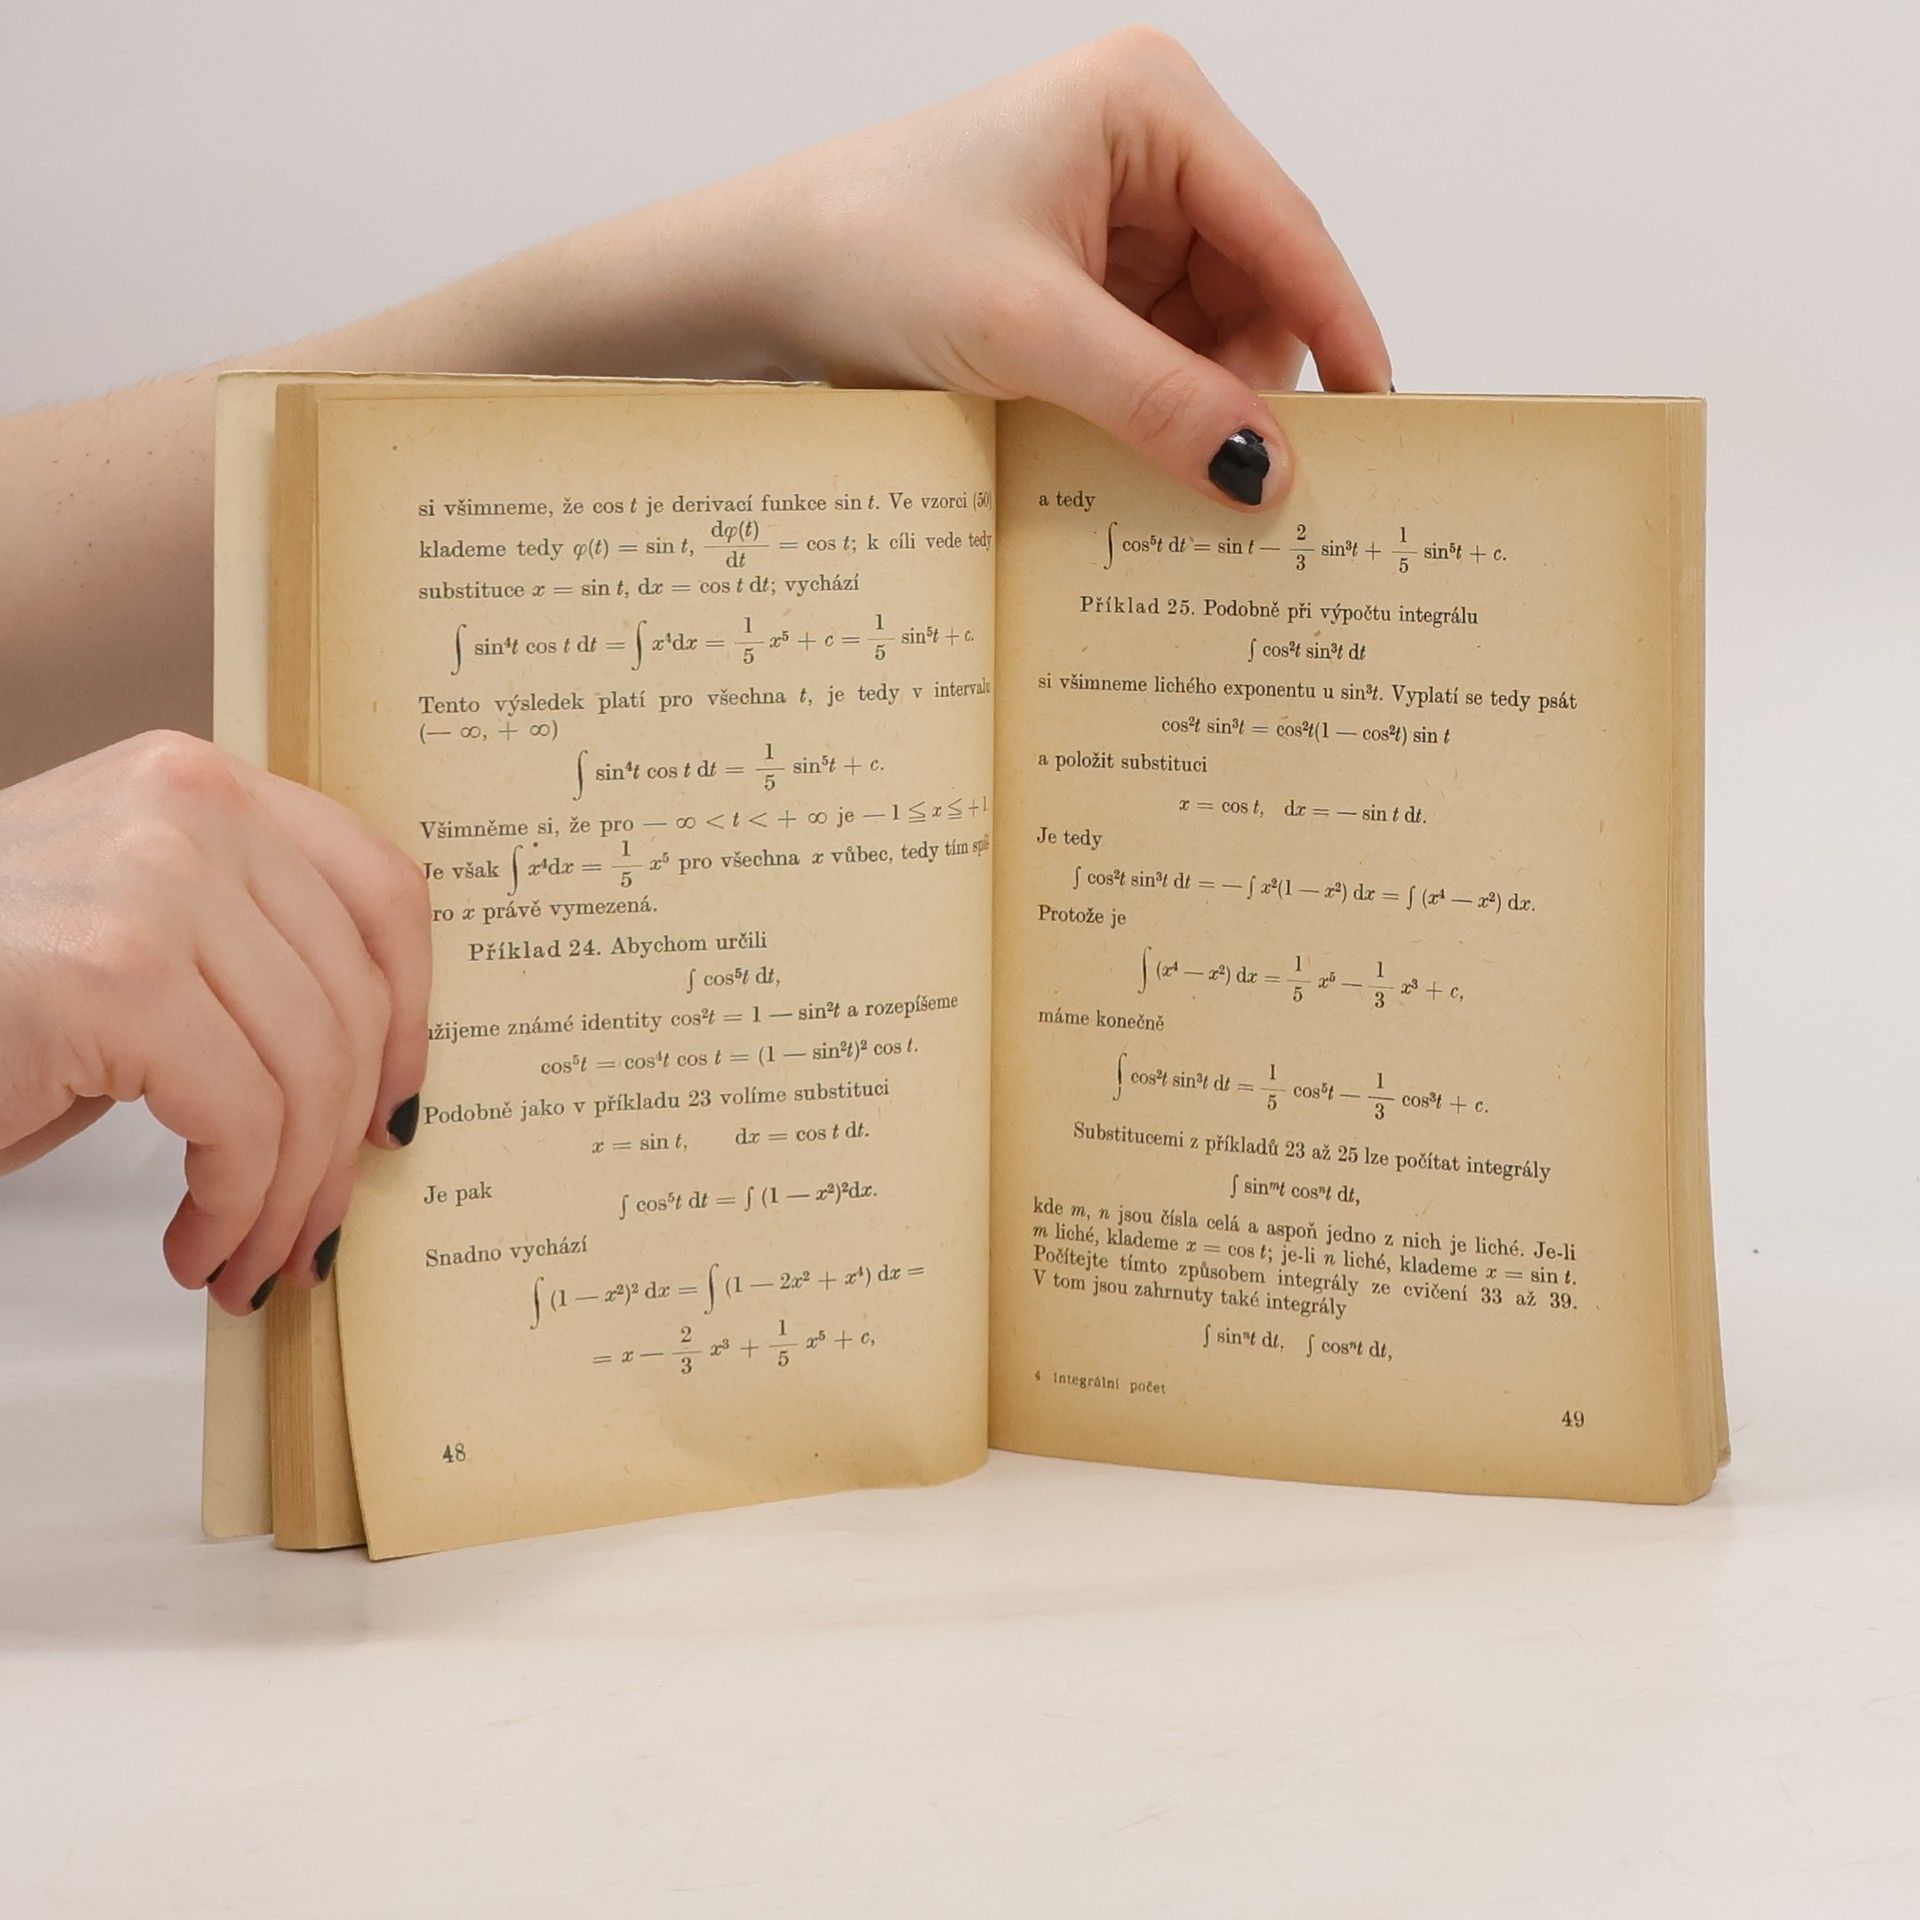 si všimneme, že cos t je derivací funkce sin t. Ve vzorci (50)
klademe tedy φ(t) = sin t, dφ(t)/dt = cos t; k cíli vede tedy
substituce x = sin t, dx = cos t dt; vychází
∫ sin⁴t cos t dt = ∫ x⁴dx = 1/5 x⁵ + c = 1/5 sin⁵t + c.
Tento výsledek platí pro všechna t, je tedy v intervalu
(— ∞, + ∞)
∫ sin⁴t cos t dt = 1/5 sin⁵t + c.
Všimněme si, že pro — ∞ < t < + ∞ je — 1 ≦ x ≦ +1.
Je však ∫ x⁴dx = 1/5 x⁵ pro všechna x vůbec, tedy tím spíš
ro x právě vymezená.
Příklad 24. Abychom určili
∫ cos⁵t dt,
užijeme známé identity cos²t = 1 — sin²t a rozepíšeme
cos⁵t = cos⁴t cos t = (1 — sin²t)² cos t.
Podobně jako v příkladu 23 volíme substituci
x = sin t, dx = cos t dt.
Je pak ∫ cos⁵t dt = ∫ (1 — x²)²dx.
Snadno vychází
∫ (1 — x²)² dx = ∫ (1 — 2x² + x⁴) dx =
= x — 2/3 x³ + 1/5 x⁵ + c,
48
a tedy
∫ cos⁵t dt = sin t — 2/3 sin³t + 1/5 sin⁵t + c.
Příklad 25. Podobně při výpočtu integrálu
∫ cos²t sin³t dt
si všimneme lichého exponentu u sin³t. Vyplatí se tedy psát
cos²t sin³t = cos²t(1 — cos²t) sin t
a položit substituci
x = cos t, dx = — sin t dt.
Je tedy
∫ cos²t sin³t dt = — ∫ x²(1 — x²) dx = ∫ (x⁴ — x²) dx.
Protože je
∫ (x⁴ — x²) dx = 1/5 x⁵ — 1/3 x³ + c,
máme konečně
∫ cos²t sin³t dt = 1/5 cos⁵t — 1/3 cos³t + c.
Substitucemi z příkladů 23 až 25 lze počítat integrály
∫ sinᵐt cosⁿt dt,
kde m, n jsou čísla celá a aspoň jedno z nich je liché. Je-li
m liché, klademe x = cos t; je-li n liché, klademe x = sin t.
Počítejte tímto způsobem integrály ze cvičení 33 až 39.
V tom jsou zahrnuty také integrály
∫ sinⁿt dt, ∫ cosⁿt dt,
4 Integrální počet
49